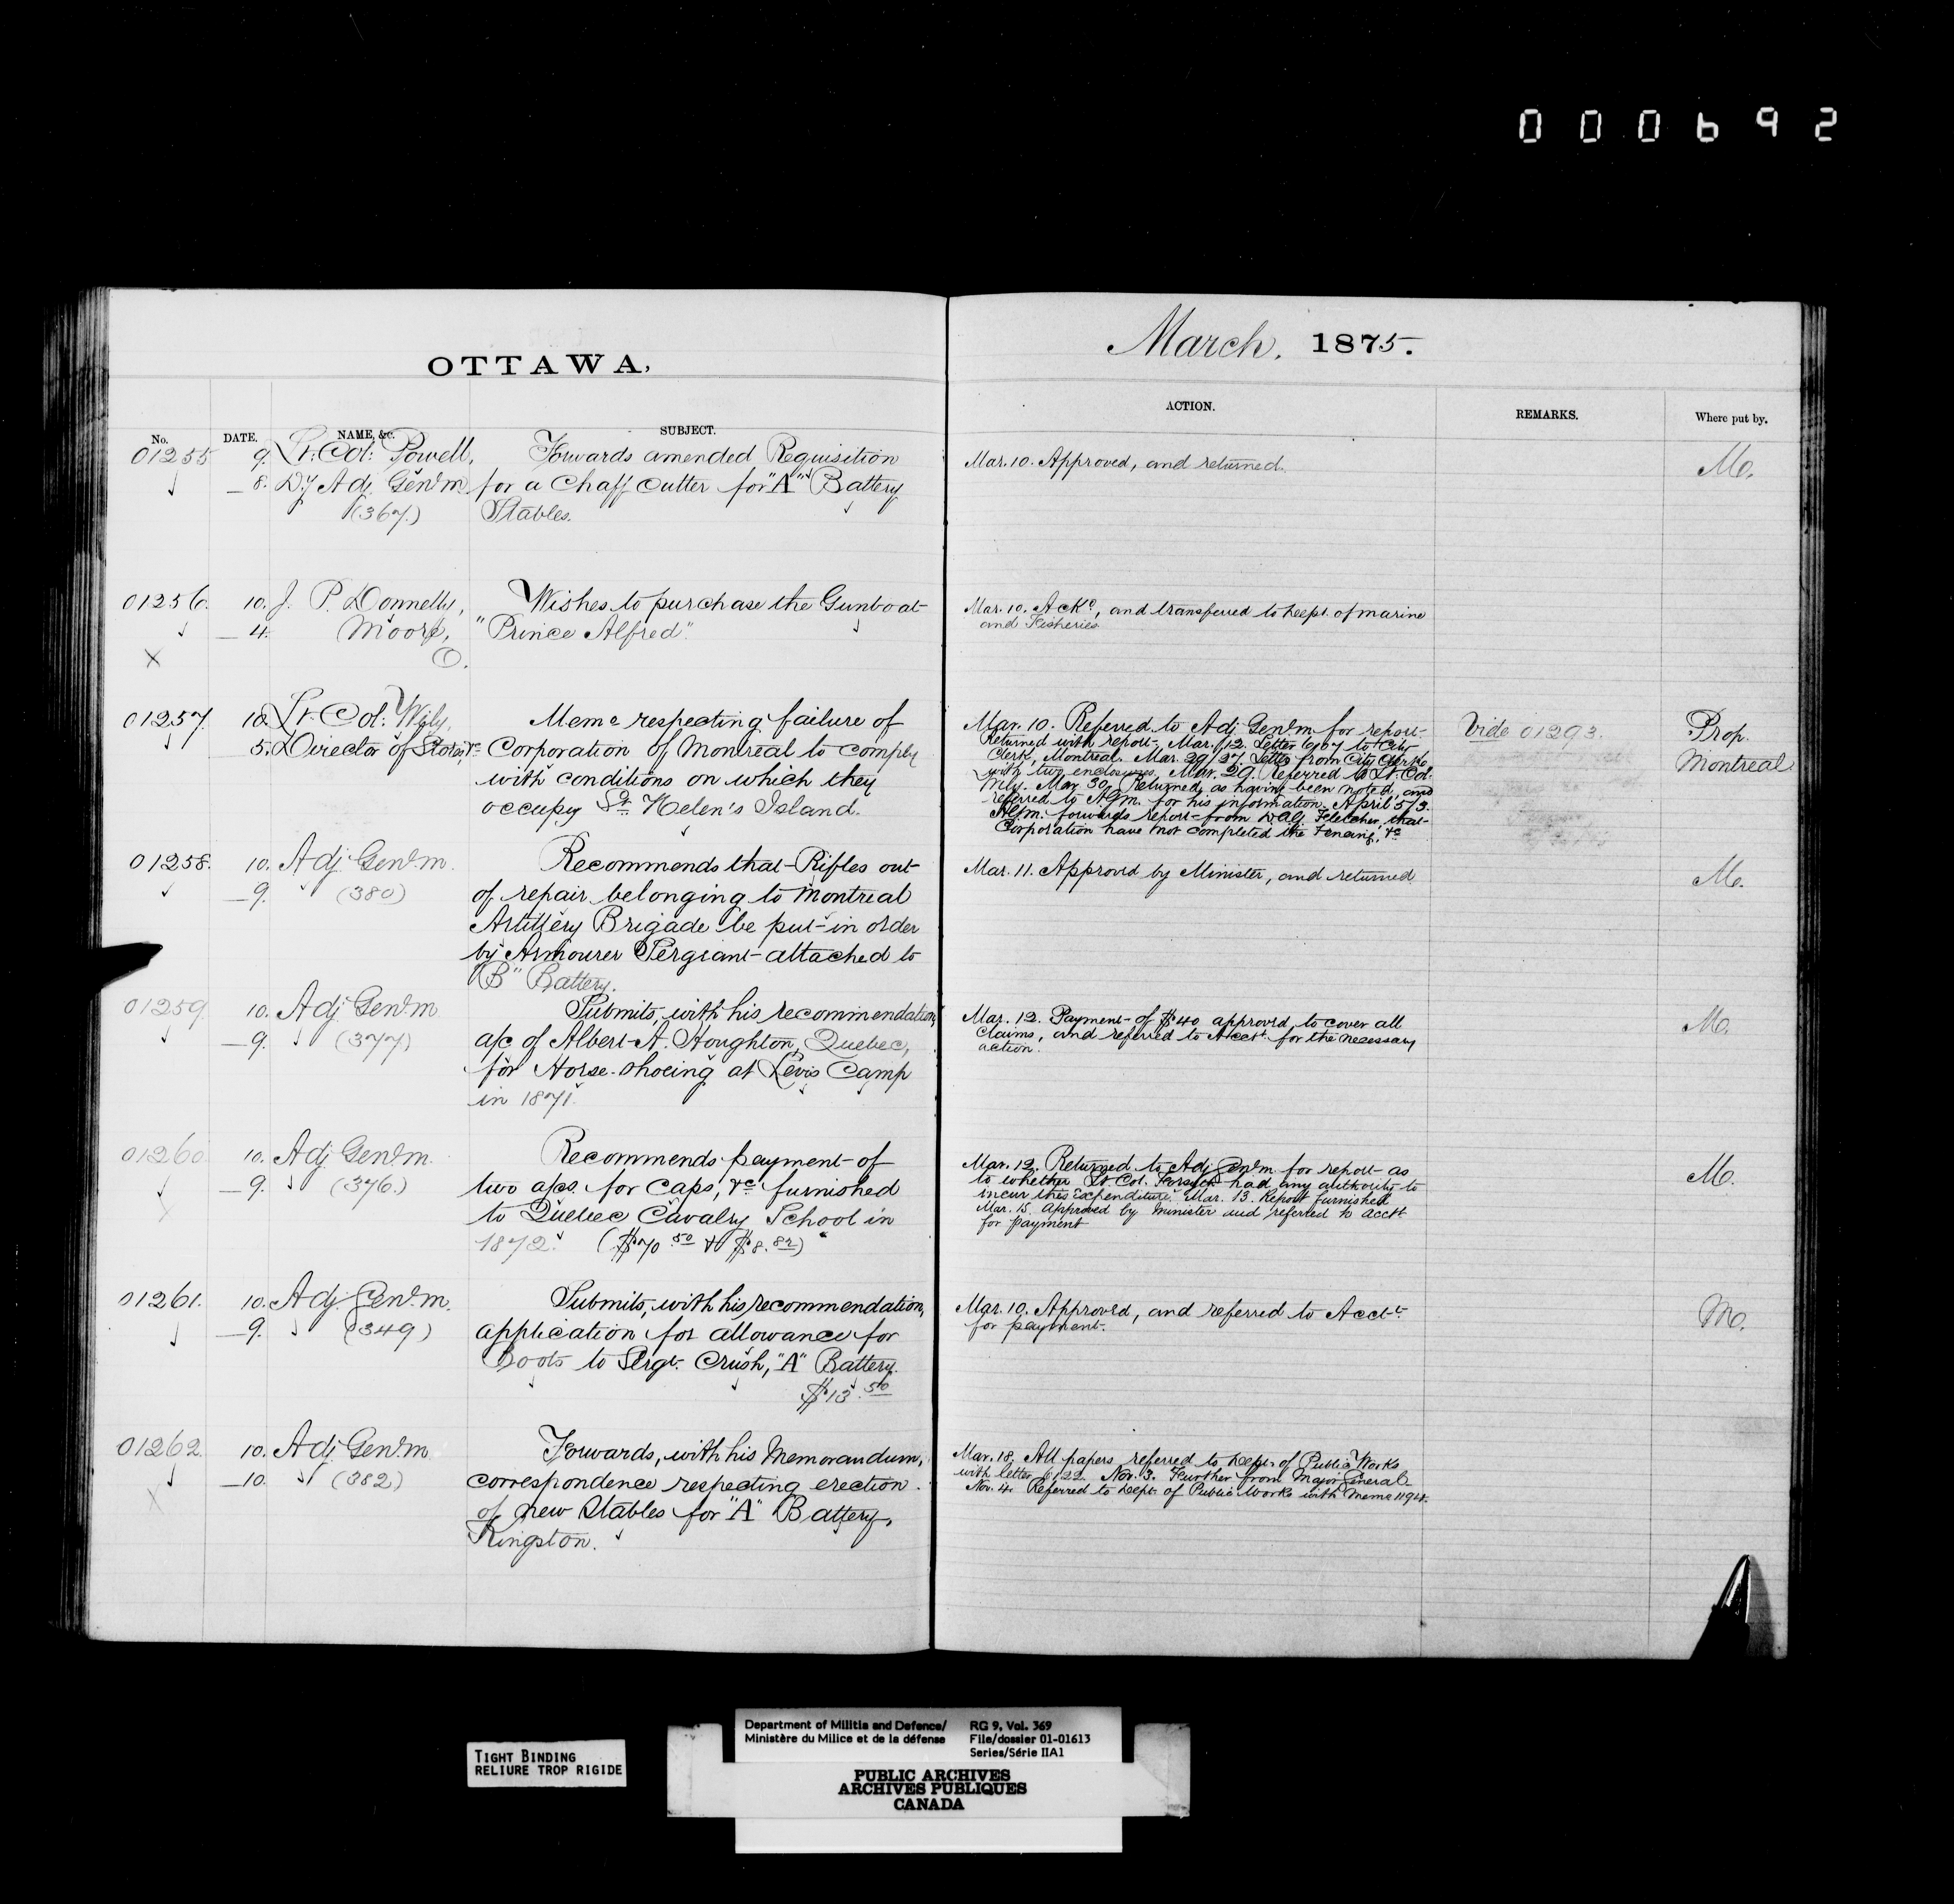 000692
OTTAWA,
March, 1875.
No.
DATE.
NAME, &c.
SUBJECT.
ACTION.
REMARKS.
Where put by.
01255
9.
Lt: Col: Powell,
Forwards amended Requisition
8.
Dy Adj. Genl. m.
for a Chaff Cutter for "A" Battery
(367.)
Stables.
Mar. 10. Approved, and returned.
Mo.
01256.
10.
J. P. Donnelly,
Wishes to purchase the Gunboat
4.
Moore,
"Prince Alfred".
O.
X
Mar. 10. Ackd, and transferred to Dept. of Marine
and Fisheries
01257.
10.
Lt. Col: Wily,
Memo respecting failure of
5.
Director of Stores, &c
Corporation of Montreal to comply
with conditions on which they
occupy St. Helen's Island.
Mar. 10. Referred to Adj. Genl. m. for report
Returned with report. Mar. 12. Letter 6107 to City
Clerk, Montreal. Mar. 29/27. Letter from City Clerk
with two enclosures. Mar. 29. Referred to Lt. Col.
Wily. Mar. 30. Returned, as having been noted, and
referred to AGm. for his information. April 5/3.
AGm. forwards report from DAG. Fletcher, that
Corporation have not completed the Fencing, &c
Vide 01293.
Prop.
Montreal
01258.
10.
Adj Genl. m.
Recommends that Rifles out
9.
(380)
of repair belonging to Montreal
Artillery Brigade be put in order
by Armourer Sergeant attached to
"B" Battery.
Mar. 11. Approved by Minister, and returned,
Mo.
01259.
10.
Adj Genl. m.
Submits, with his recommendation,
9.
(377)
a/c of Albert A. Houghton, Quebec,
for Horse-shoeing at Levis Camp
in 1871.
Mar. 12. Payment of $40 approved, to cover all
claims, and referred to Acctt. for the necessary
action.
Mo.
01260.
10.
Adj Genl. m.
Recommends payment of
9.
(376.)
two a/cs. for Caps, &c. furnished
X
to Quebec Cavalry School in
1872. ($70.50 & $8.82)
Mar. 12. Returned to Adj. Genl. m. for report as
to whether Lt. Col. Forsyth had any authority to
incur this Expenditure. Mar. 13. Report furnished
Mar. 15. Approved by Minister and referred to acctt
for payment
Mo.
01261.
10.
Adj. Genl. m.
Submits, with his recommendation,
9.
(349)
application for allowance for
Boots to Sergt. Crush, "A" Battery.
$13.50
Mar. 10. Approved, and referred to Acctt.
for payment.
Mo.
01262.
10.
Adj. Genl. m.
Forwards, with his Memorandum,
10.
(382)
correspondence respecting erection
X
of new Stables for "A" Battery,
Kingston.
Mar. 18. All papers referred to Dept. of Public Works
with letter 6122. Nov. 3. Further from Major General
Nov. 4. Referred to Dept. of Public Works with Memo 1194.
TIGHT BINDING
RELIURE TROP RIGIDE
Department of Militia and Defence/
Ministère du Milice et de la défense
RG 9, Vol. 369
File/dossier 01-01613
Series/Série IIA1
PUBLIC ARCHIVES
ARCHIVES PUBLIQUES
CANADA